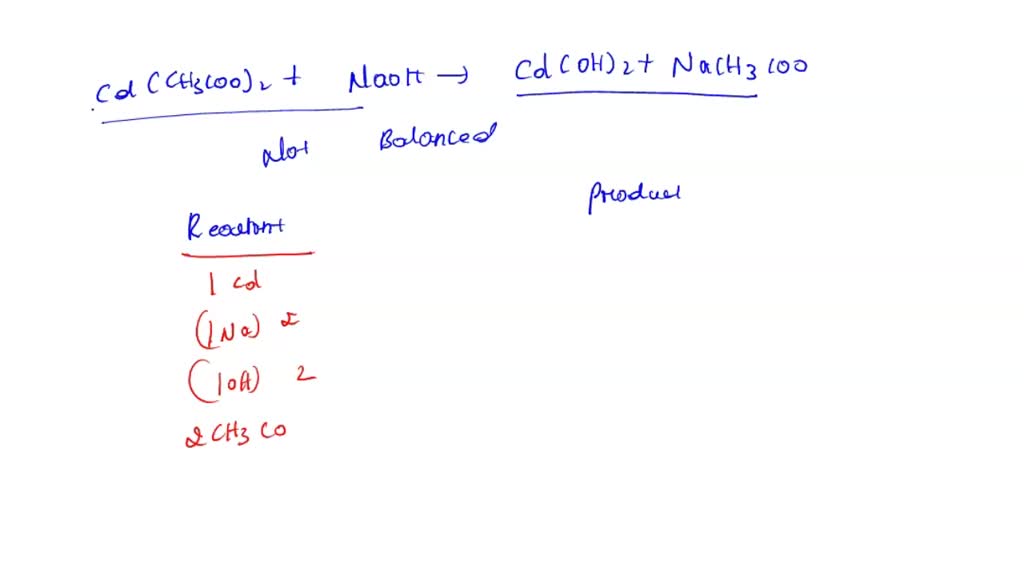 Cd(CH3COO)2 + NaOH → Cd(OH)2 + NaCH3COO
Not Balanced
Product
Reactant
1 Cd
(1Na) 2
(1OH) 2
2CH3CO